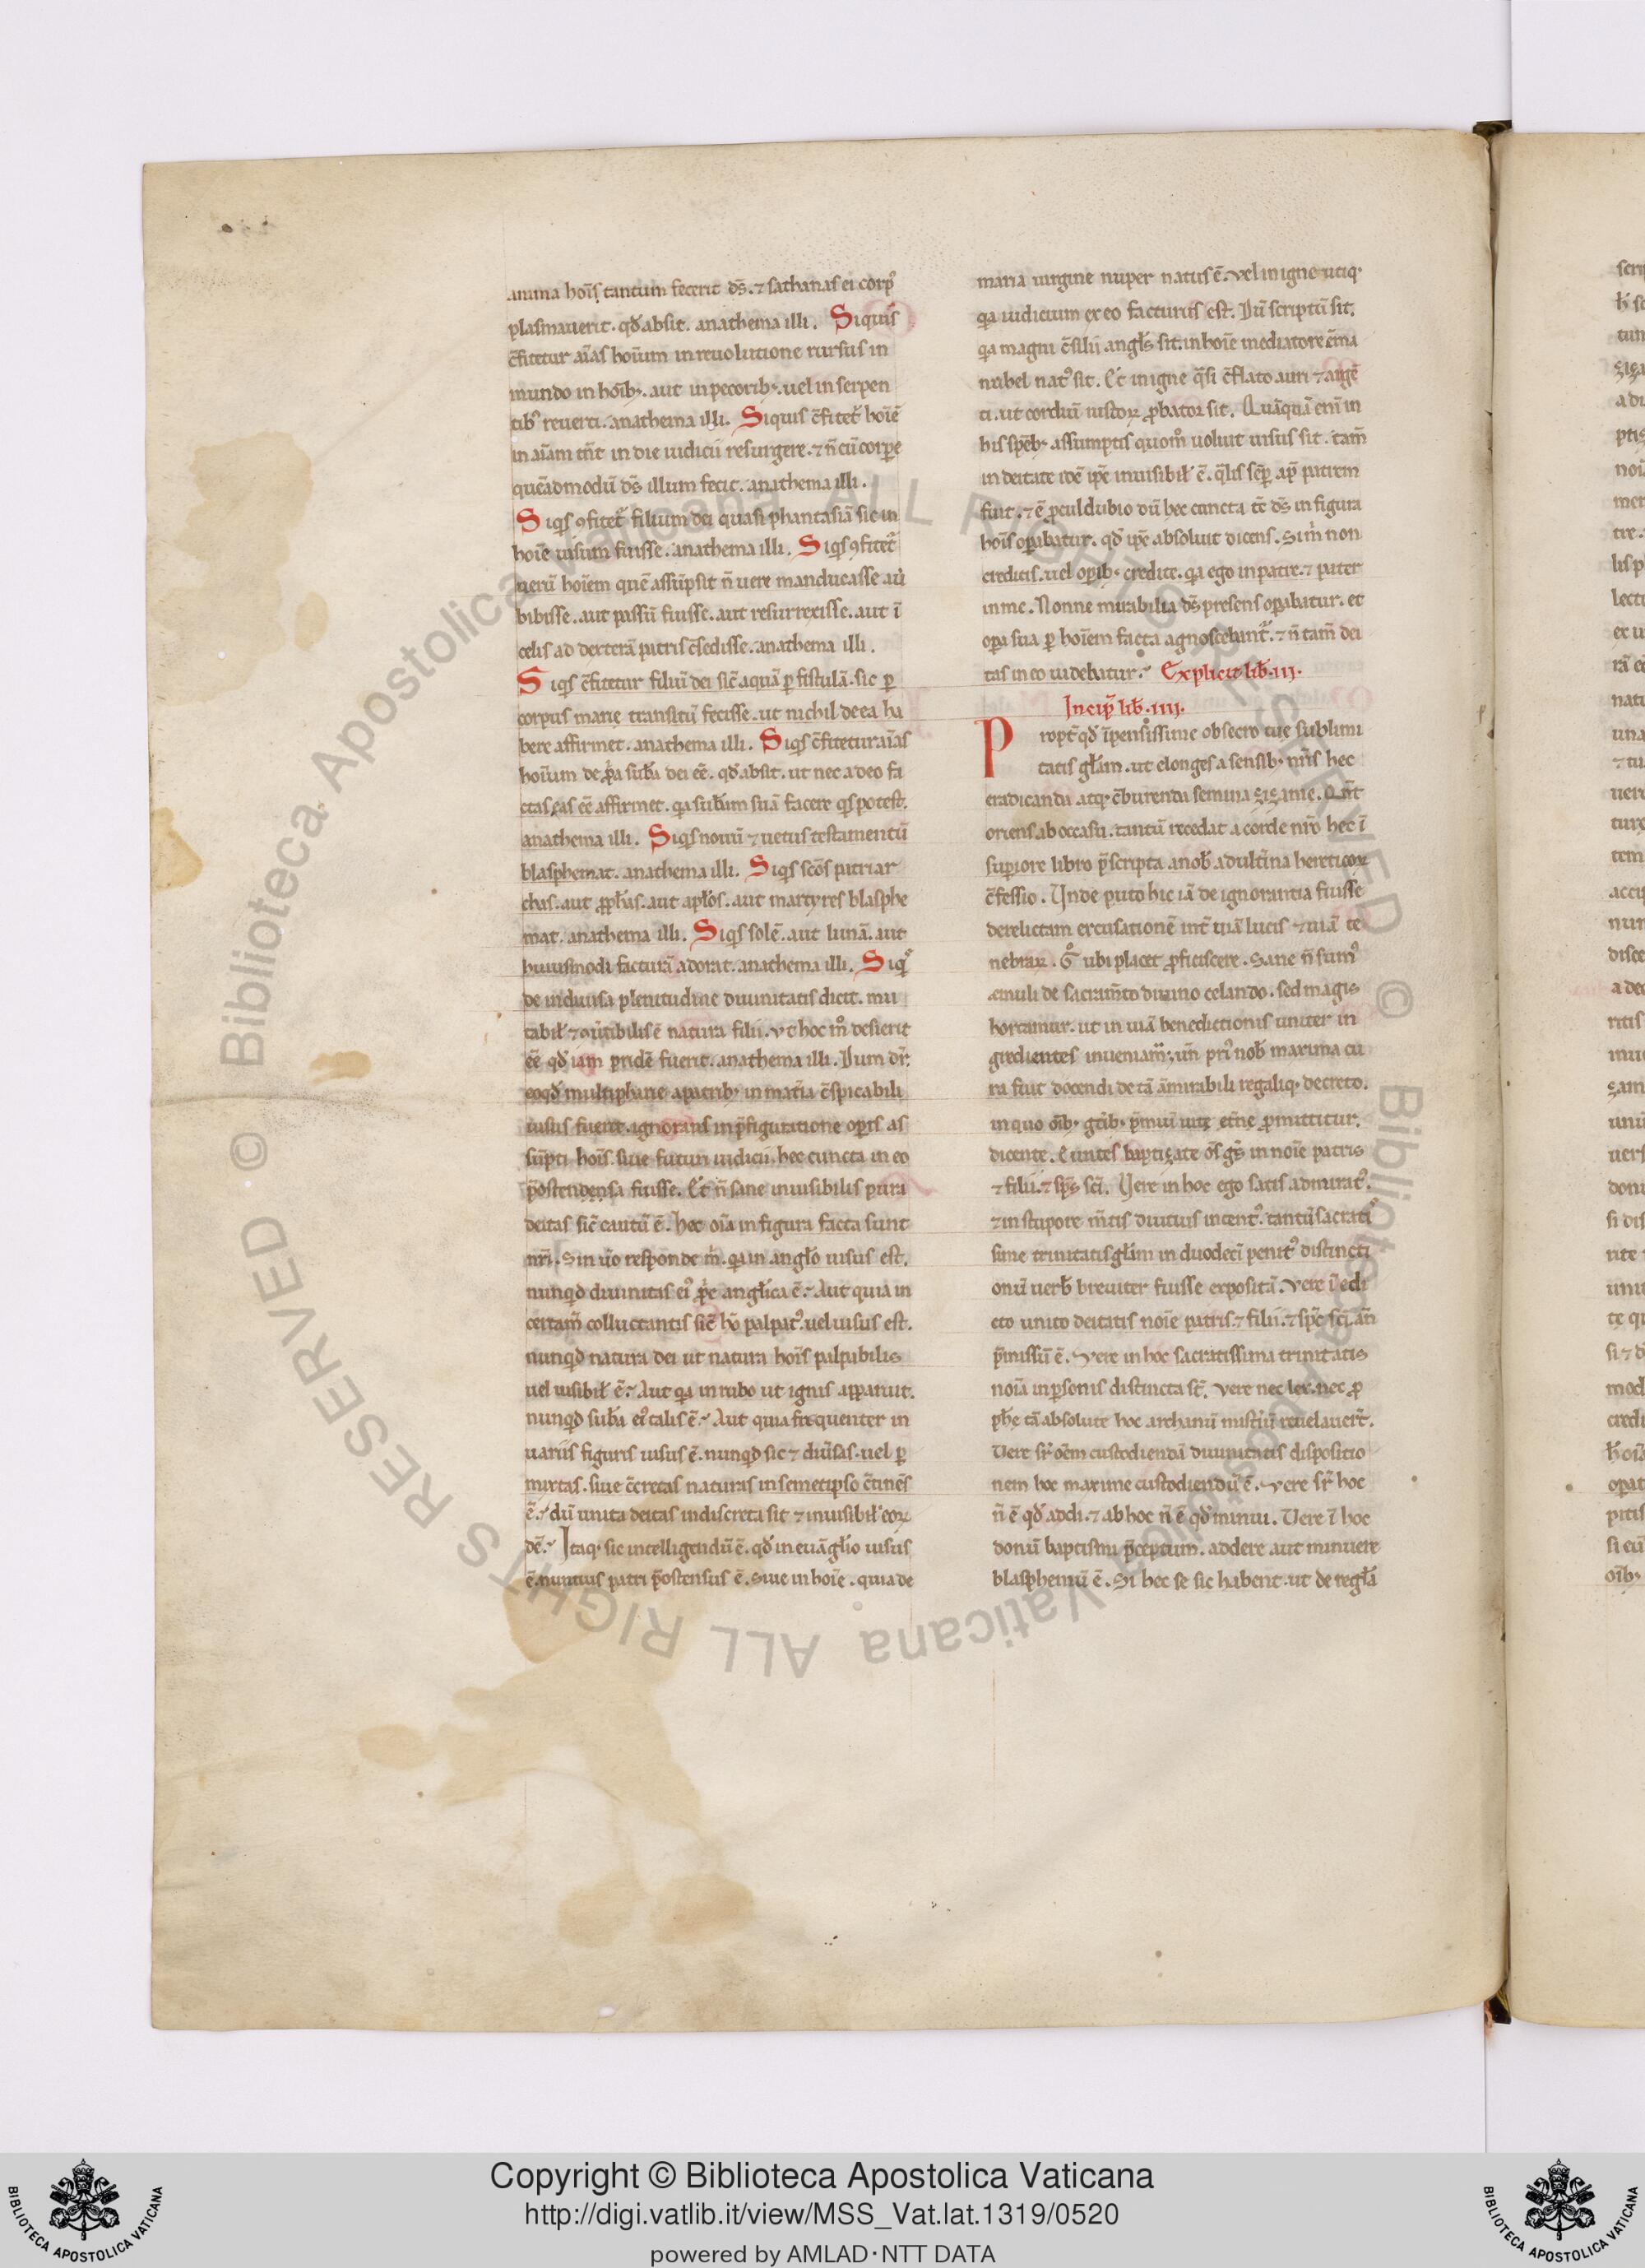 anima hoīs tantum fecerit ds̄. ⁊ sathanas ei corpꝰ
plasmauerit. qđ absit. anathema illi. Siquis
c̄fitetur aīas hoīum in reuolutione rursus in
mundo in hoībꝫ. aut in pecoribꝫ. uel in serpen
tibꝰ reuerti. anathema illi. Siquis c̄fitet̄ hoīē
in aīam tn̄t in die iudicii resurgere. ⁊ n̄ cū corꝑe
quēadmodū ds̄ illum fecit. anathema illi.
Siqͥs ꝯfitet̄ filium dei quasi phantasiā sic in
hoīe uisum fuisse. anathema illi. Siqͥs ꝯfitet̄
uerū hoīem quē assūpsit n̄ uere manducasse au̇
bibisse. aut passū fuisse. aut resurrexisse. aut ī
celis ad dexterā patris c̄sedisse. anathema illi.
Siqͥs c̄fitetur filiū dei sic̄ aquā ꝑ fistulā. sic ꝑ
corpus marie transitū fecisse. ut nichil de ea ha
bere affirmet. anathema illi. Siqͥs c̄fitetur aīas
hoīum de ꝓͥa sub̄a dei eē. qđ absit. ut nec a deo fa
ctas eas eē affirmet. qͣ sub̄am suā facere qͥs potest.
anathema illi. Siqͥs nouū ⁊ uetus testamentū
blasphemat. anathema illi. Siqͥs scōs patriar
chas. aut ꝓphās. aut apłos. aut martyres blasphe
mat. anathema illi. Siqͥs solē. aut lunā. aut
huiusmodi facturā adorat. anathema illi. Siqͥs
de indiuisa plenitudine diuinitatis dicit. mu
tabił ⁊ ꝯūtibilis ē natura filii. ut hoc m̊ desierit
eē qđ iam pridē fuerit. anathema illi. Dum dr̄.
eoqđ multipharie a patribꝫ in mat̄ia c̄spicabili
uisus fuerit. ignorans in p̄figuratione oꝑis as
sūpti hoīs. siue futuri iudicii. hec cuncta in eo
p̄ostendensa fuisse. Et n̄ sane inuisibilis pura
deitas sic̄ cautū ē. hec oīa in figura facta sunt
nr̄i. Sin ūo responde m̄. qͣ in angło uisus est.
nunqͥd diuinitas eiꝰ ꝓpͥe angłica ē. Aut quia in
certam̄ colluctantis sic̄ hō palpatꝰ. uel uisus est.
nunqͥd natura dei ut natura hoīs palpabilis
uel uisibił ē. Aut qͣ in rubo ut ignis apparuit.
nunqͥd sub̄a eiꝰ talis ē. Aut quia frequenter in
uariis figuris uisus ē. nunqͥd sic ⁊ diūsas. uel ꝑ
mixtas. siue c̄cretas naturas in semetipso c̄tinēs
ē. dū unita deitas indiscreta sit ⁊ inuisibił eoꝝ
dē. Itaqꝫ sic intelligendū ē. qđ in euāgłio uisus
ē. nuntius patri p̄ostensus ē. Siue in hoīe. quia de
maria uirgine nuper natus ē. Vel in igne utiqꝫ
qͣ iudicium ex eo facturus est. Dū scriptū sit.
qͣ magni c̄silii angłs sit. in hoīe mediatore ēma
nuhel natꝰ sit. Et in igne qͣsi c̄flato auri ⁊ argē
ti. ut cordiū iustoꝝ ꝓbator sit. Quāquā eni in
his spēbꝫ assumptis quom̊ uoluit uisus sit. tam̄
in deitate idē ipe inuisibił ē. qͣlis semꝑ apͩ patrem
fuit. ⁊ ē ꝓculdubio dū hec cuncta tc̄ ds̄ in figura
hoīs oꝑabatur. qđ ipe absoluit dicens. Si m̄ non
creditis. uel oꝑibꝫ credite. qͣ ego in patre. ⁊ pater
in me. Nonne mirabilia ds̄ presens oꝑabatur. et
oꝑa sua ꝑ hoīem facta agnoscebant̄. ⁊ n̄ tam̄ dei
tas in eo uidebatur. Explicit lib̄. iij.
Incip̄ lib̄. iiij.
Propt̄ qđ īpensissime obsecro tue sublimi
tatis głam. ut elonges a sensibꝫ nr̄is hec
eradicanda atqꝫ c̄burenda semina zizanie. Qn̄t
oriens ab occasu. tantū recedat a corde nr̄o hec ī
suꝑiore libro p̄scripta a nob̄ adult̄ina hereticoꝝ
c̄fessio. Unde puto hic iā de ignorantia fuisse
derelictam excusationē int̄ uiā lucis ⁊ uiā te
nebraꝝ. G̊ ubi placet ꝓficiscere. Sane n̄ sumꝰ
emuli de sacram̄to diuino celando. sed magis
hortamur. ut in uiā benedictionis uniter in
gredientes inueniam̄. un̄ pri nob̄ maxima cu
ra fuit docendi de tā āmirabili regaliqꝫ decreto.
in quo oībꝫ gtībꝫ p̄miū uite et̄ne ꝓmittitur.
dicente. Euntes baptizate oēs gēs in noīe patris
⁊ filii. ⁊ sp̄s sci. Vere in hoc ego satis admiratꝰ.
⁊ in stupore m̄tis diutius intentꝰ. tantū sacrati
sime trinitatis głam in duodeci penitꝰ distincti
onū uerb̄ breuiter fuisse expositā. Vere ī edi
cto unito deitatis noīe patris. ⁊ filii. ⁊ sp̄c sci. an̄
p̄missū ē. Vere in hoc sacratissima trinitatis
noīa in ꝑsonis distincta st̄. Vere nec lex. nec ꝓ
phe tā absolute hoc archanū mist̄iū reuelauert̄.
Vere sr̄ oēm custodiendā diuinitatis dispositio
nem hoc maxime custodiendū ē. Vere sr̄ hoc
n̄ ē qđ addi. ⁊ ab hoc n̄ ē qđ minui. Vere ī hoc
donū baptismi p̄ceptum. addere aut minuere
blasphemū ē. Si hec se sic habent. ut de regłā
Copyright © Biblioteca Apostolica Vaticana
http://digi.vatlib.it/view/MSS_Vat.lat.1319/0520
powered by AMLAD·NTT DATA